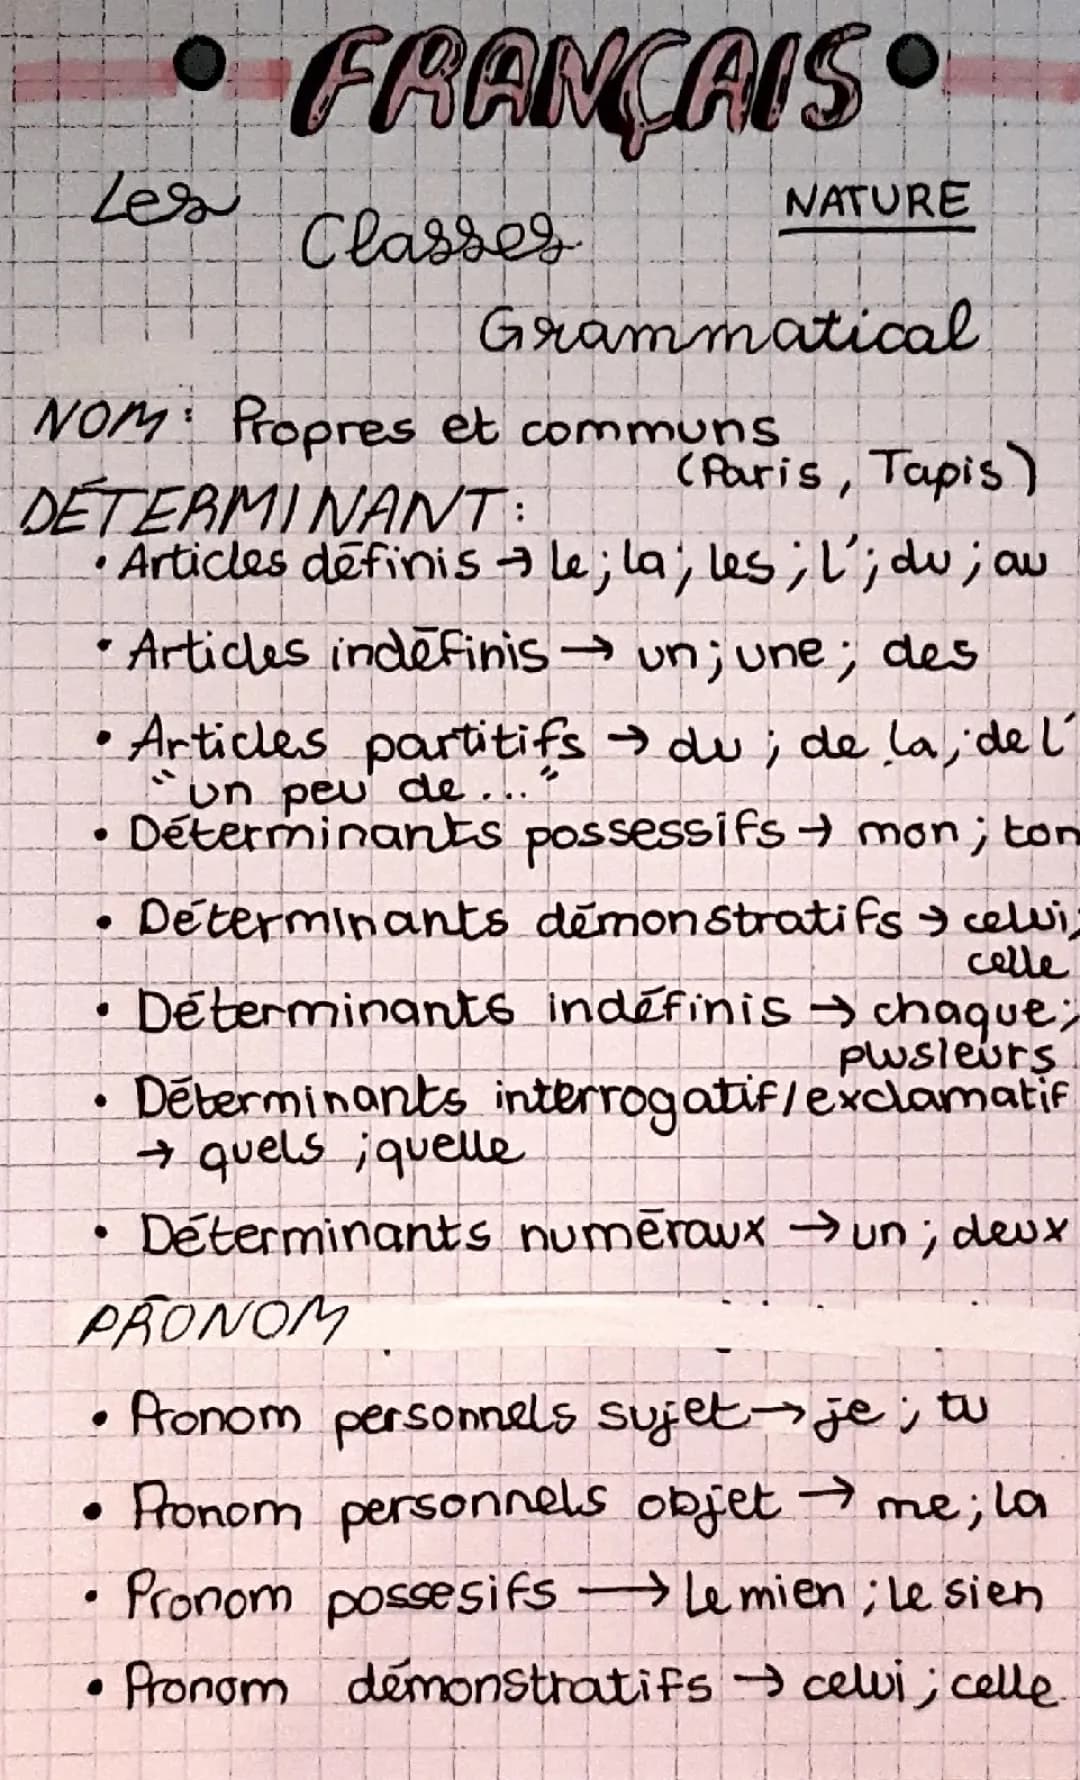 • FRANÇAIS •
Les
NATURE
Classes
Grammatical
NOM : Propres et communs
(Paris, Tapis)
DÉTERMINANT :
• Articles définis → le ; la ; les ; l' ; du ; au
• Articles indéfinis → un ; une ; des
• Articles partitifs → du ; de la ; de l'
"un peu de..."
• Déterminants possessifs → mon ; ton
• Déterminants démonstratifs → celui ;
celle
• Déterminants indéfinis → chaque ;
plusieurs
• Déterminants interrogatif/exclamatif
→ quels ; quelle
• Déterminants numéraux → un ; deux
PRONOM
• Pronom personnels sujet → je ; tu
• Pronom personnels objet → me ; la
• Pronom possesifs → Le mien ; le sien
• Pronom démonstratifs → celui ; celle